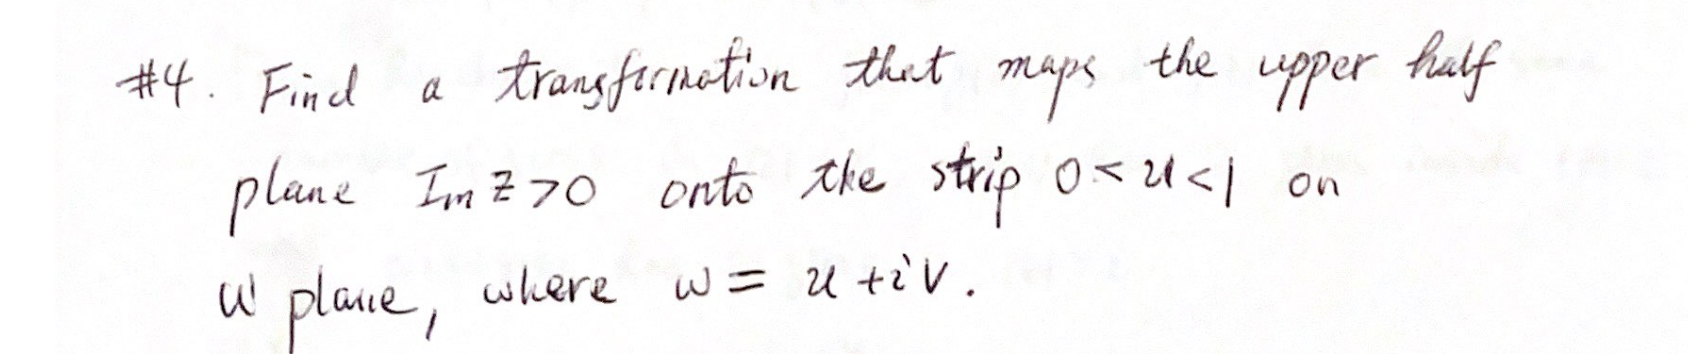 #4. Find a transformation that maps the upper half
plane Im z > 0 onto the strip 0 < u < 1 on
w plane, where w = u + i v.